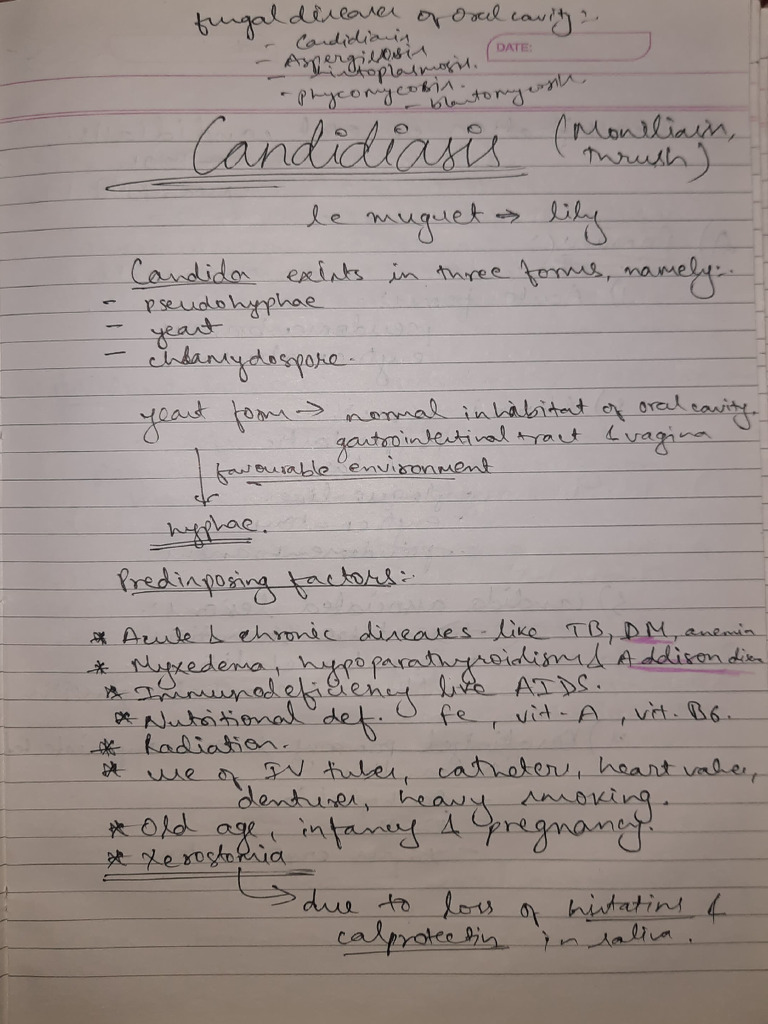 fungal diseases of oral cavity:-
- Candidiasis
DATE:
- Aspergillosis
- Histoplasmosis.
- phycomycosis.
- blastomycosis.
Candidiasis (Moniliasis,
thrush)
le muguet → lily
Candida exists in three forms, namely:-
- pseudohyphae
- yeast
- chlamydospore.
yeast form → normal inhabitat of oral cavity,
gastrointestinal tract & vagina
favourable environment
hyphae.
Predisposing factors:-
* Acute & chronic diseases like TB, DM, anemia
* Myxedema, hypoparathyroidism & Addison disea
* Immunodeficiency like AIDS.
* Nutritional def. Fe, vit-A, vit. B6.
* Radiation.
* use of IV tubes, catheters, heart valves,
dentures, heavy smoking.
* Old age, infancy & pregnancy.
* Xerostomia
→ due to loss of histatins &
calprotectin in saliva.